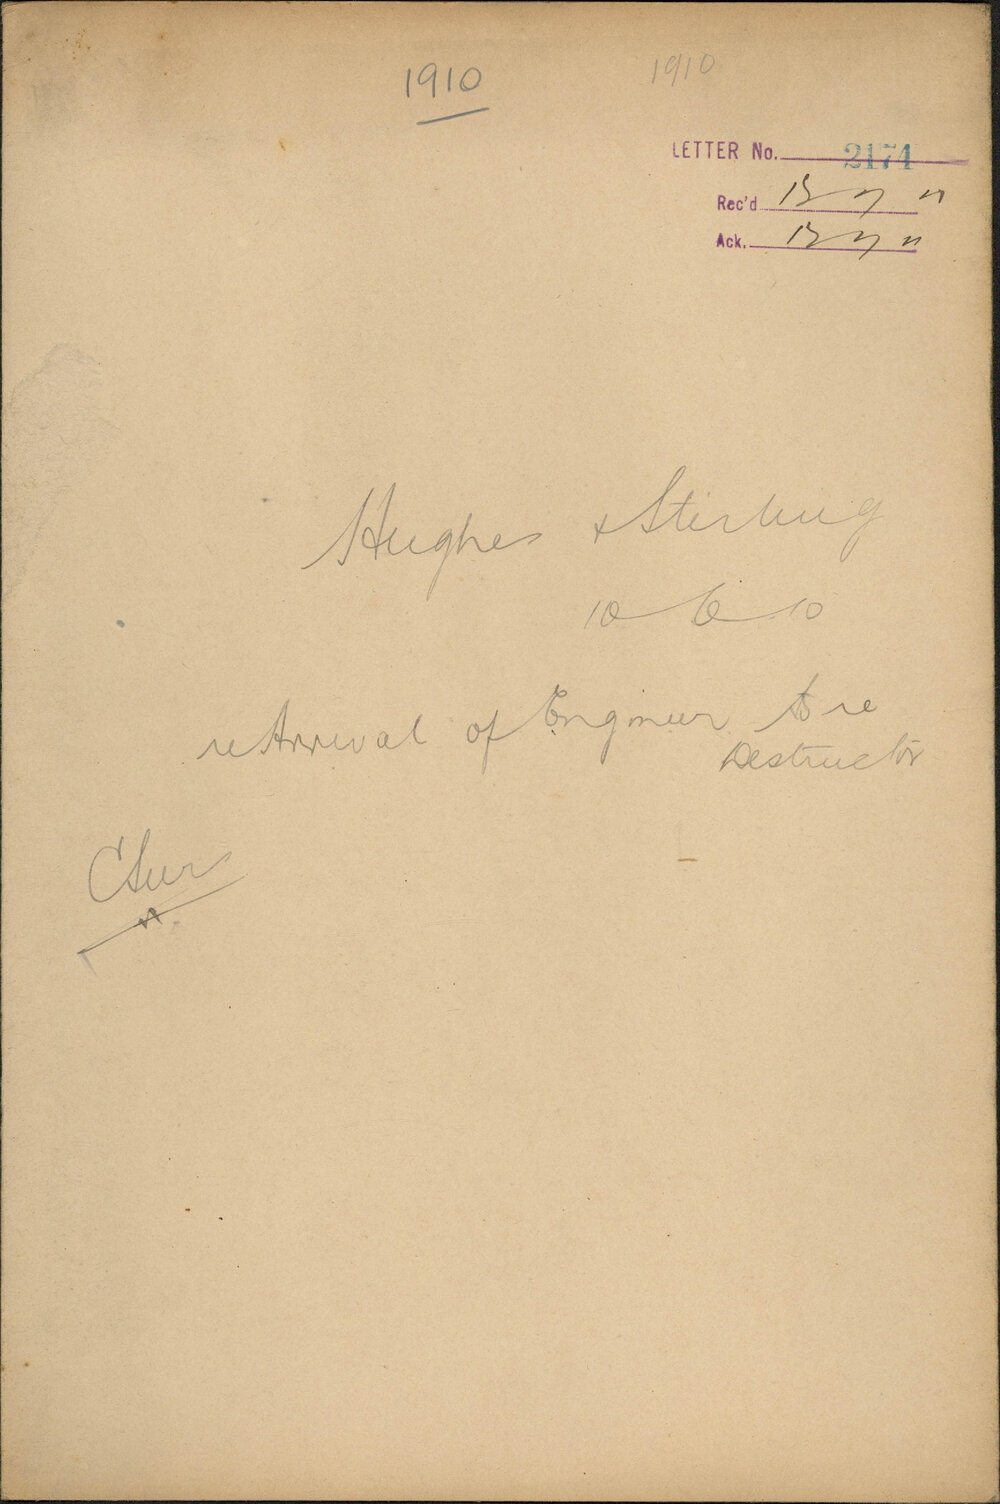 1910
1910
LETTER No. 2174
Rec'd 13 7
Ack. 13 7
Hughes & Stirling
10 6 10
re Arrival of Engineer to re
Destructor